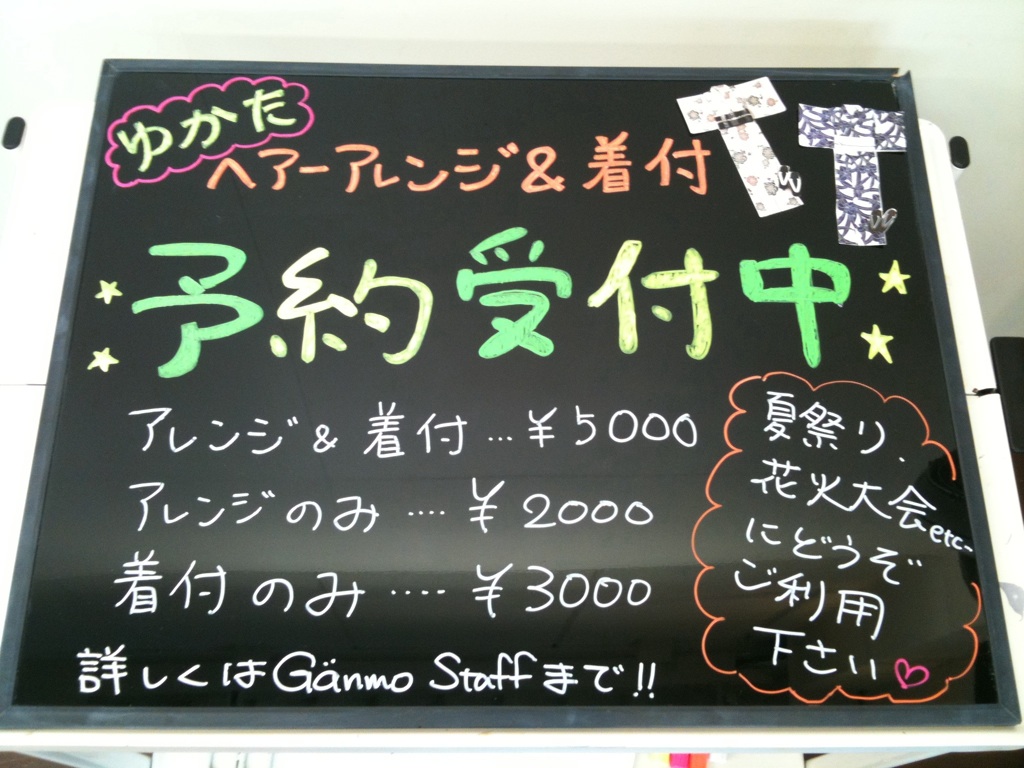 ゆかた
ヘアーアレンジ&着付
予約受付中
アレンジ&着付…¥5000
アレンジのみ‥‥¥2000
着付のみ‥‥¥3000
詳しくはGänmo Staffまで!!
夏祭り、
花火大会etc-
にどうぞ
ご利用
下さい♡